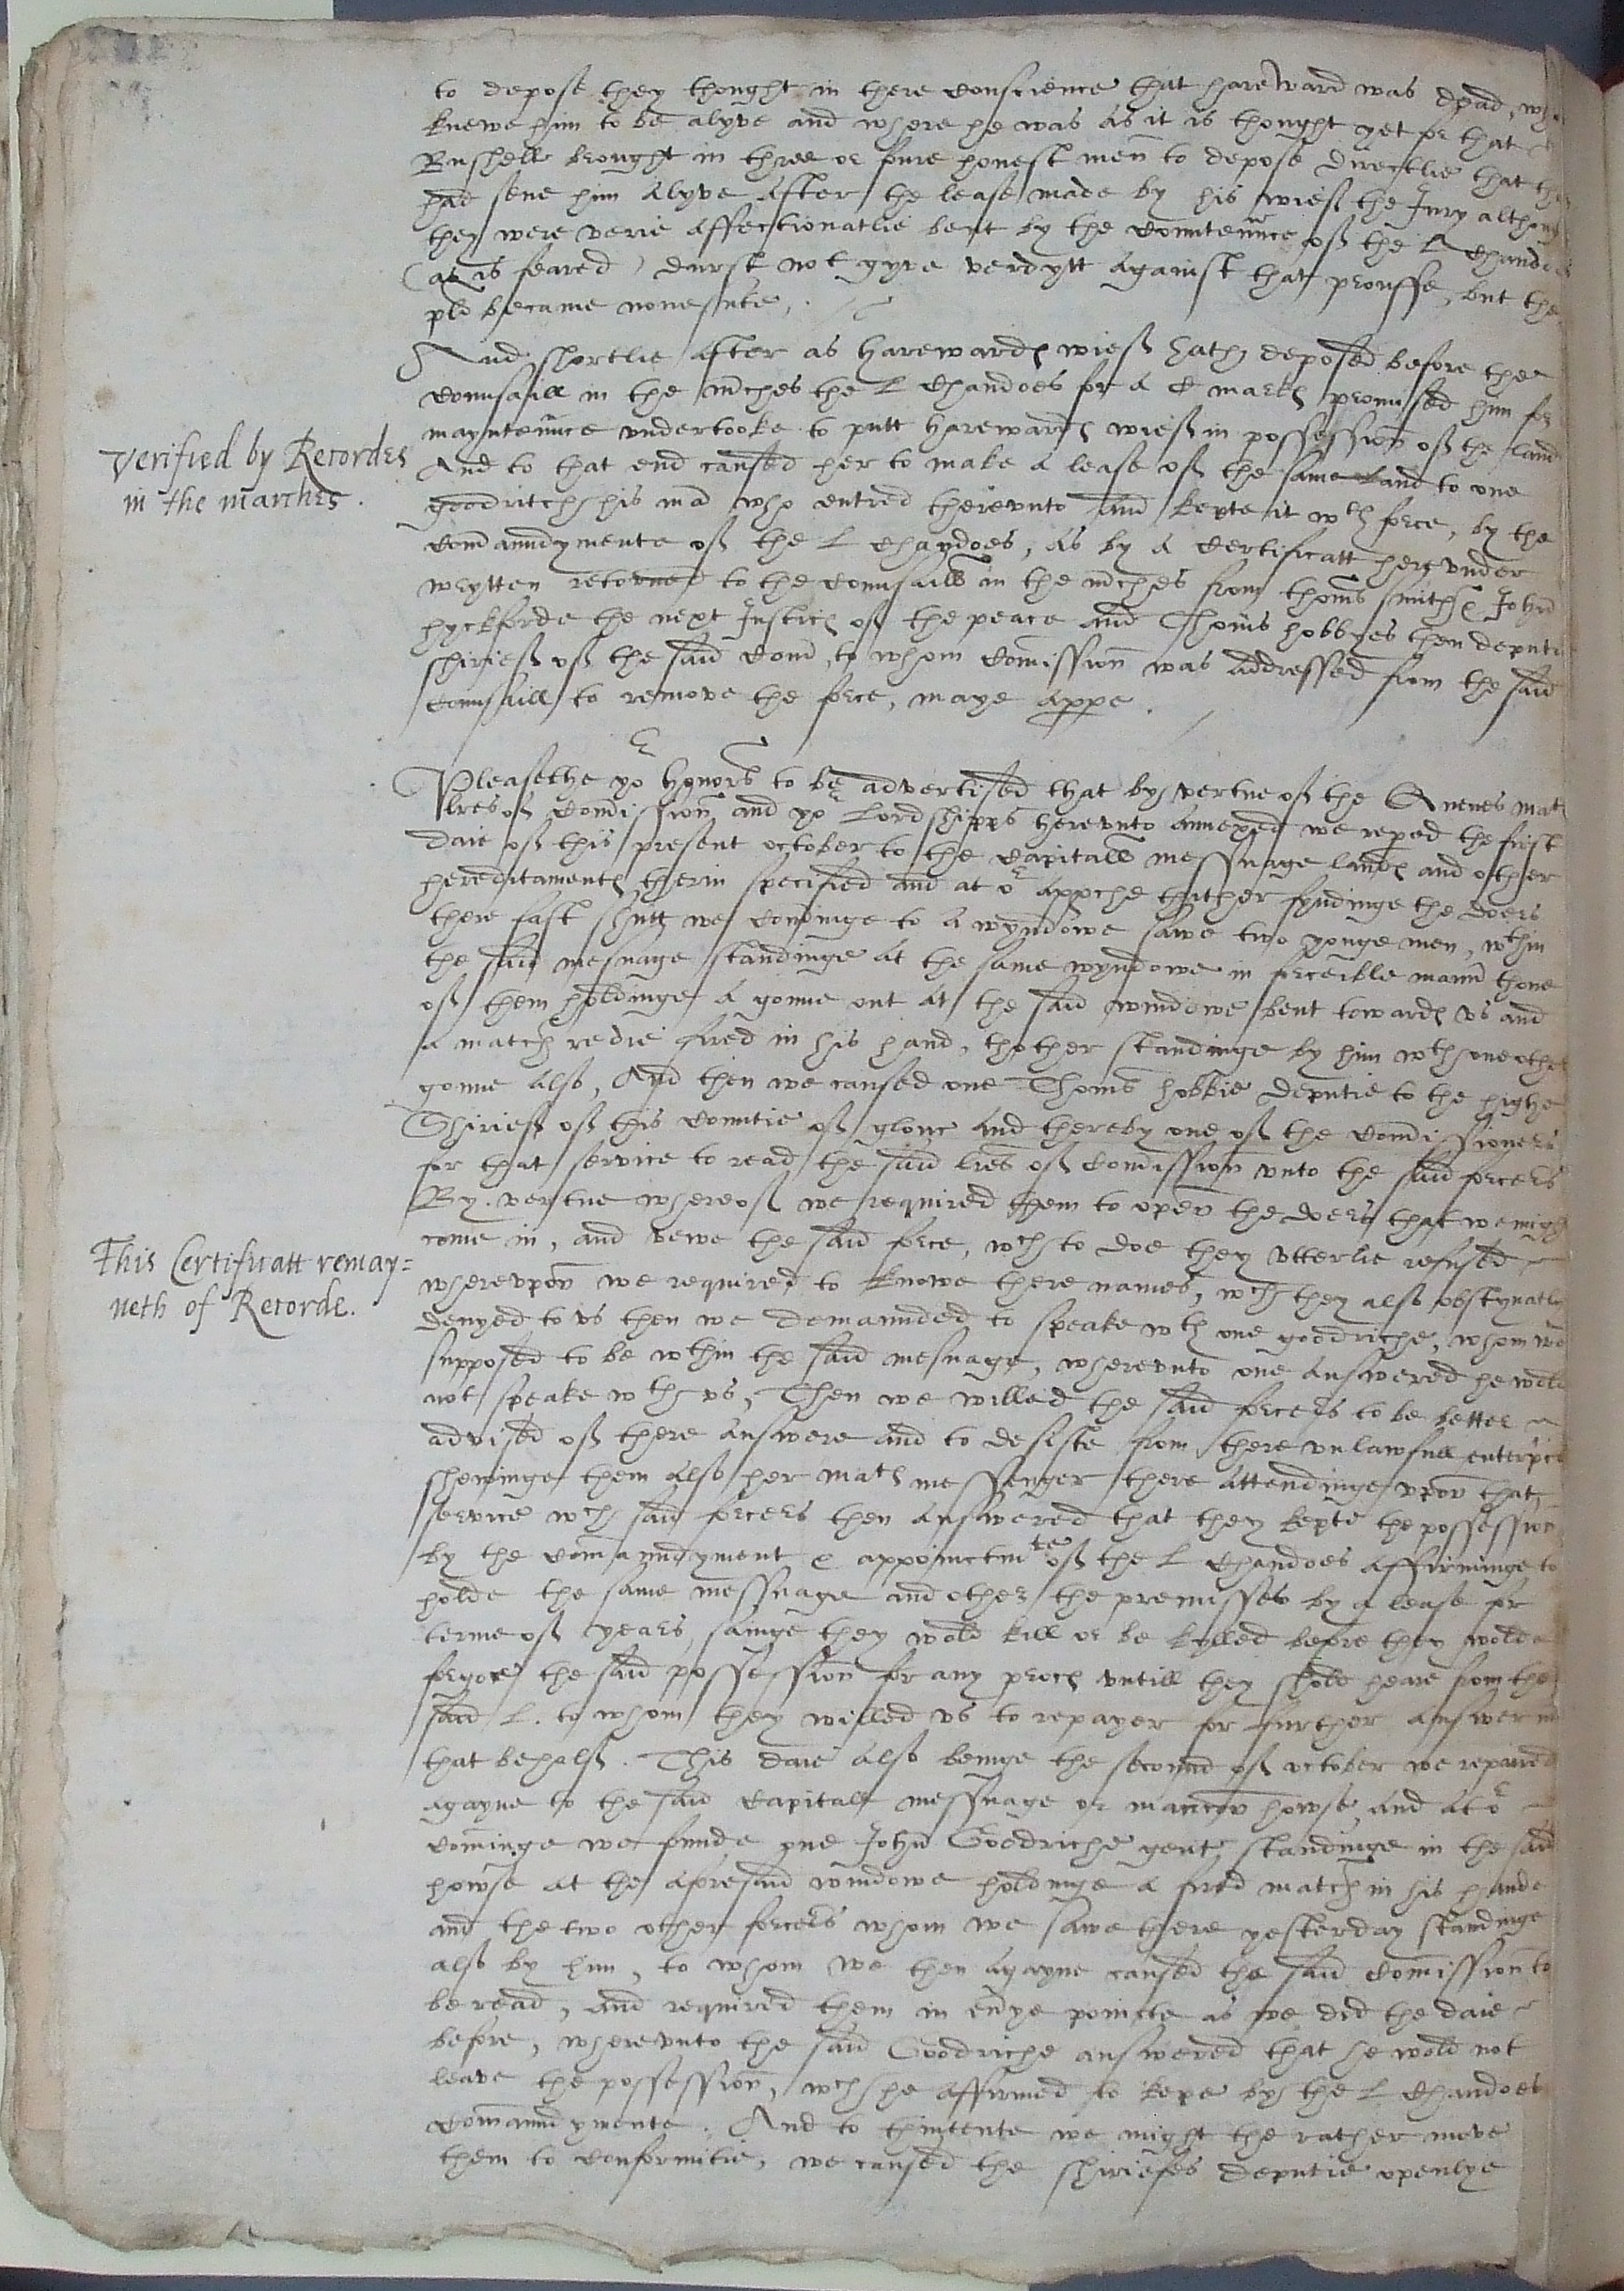 to depose they thought in there conscience that hareward was dead, who
knewe him to be alyve and where he was as it is thought yet for that
Rushell brought in three or foure honest men to depose directlie that they
had sene him alyve after the lease made by his wief the Jury although
they were verie affectionatlie bent by the countennce of the L Chandoes
(as is feared) durst not gyve verdytt against that prouffe, but the
pld became nonesute,
And shortlie after as harewards wief hath deposed before the
counsaill in the mches the L Chandoes for a C marks promised him for
mayntennce undertooke to putt harewards wief in possession of the land
And to that end caused her to make a lease of the same land to one
goodritch his man who entred therevnto and kepte it wth force, by the
comaundymente of the L Chandoes, as by a Certificatt here vnder
wrytten retorned to the counsaill in the mches from thoms smith & John
hyckforde the next Justics of the peace and Thoms hobbyes then deputie
shirief of the said Com, to whom Comission was addressed from the said
counsaill to remove the force, maye appe.
Verified by Recordes
in the marches.
Pleasethe yor honors to be advertised that by vertue of the Quenes mats
lres of Comission and yor Lordshipps herevnto annexed we reped the first
daie of this present october to the capitall messuage lands and other
hereditaments therin specified and at or appche thither fyndinge the doers
there fast shutt we cominge to a wyndowe sawe two yonge men, wthin
the said mesuage standinge at the same wyndowe in forceible mann thone
of them holdinge a gonne out at the said windowe bent towards vs and
a match redie fired in his hand, thother standinge by him wth one other
gonne also, And then we caused one Thoms hobbie deputie to the highe
Shirief of this countie of glouc and thereby one of the Comissioners
for that service to read the said lres of Comission vnto the said forcers
By vertue whereof we required them to open the doers that we might
come in, and vewe the said force, wch to doe they vtterlie refused
wherevpon we required to knowe there names, wch they also obstynatly
denyed to vs then we demaunded to speake wth one goodriche, whom we
supposed to be wthin the said mesuage, wherevnto one answered he wold
not speake wth vs, Then we willed the said forcers to be better
advised of there answere and to desiste from there vnlawfull enterprice
shewinge them also her mats messenger there attendinge vpon that
service wch said forcers then answered that they kepte the possession
by the comaundyment & appoinctmte of the L Chandoes affirminge to
holde the same messuage and other the premisses by a lease for
terme of years, sainge they wold kill or be kylled before they wolde
forgoe the said possession for any procs vntill they shold heare from the
said L. to whom they willed vs to repayer for further answer in
that behalf. This daie also beinge the second of october we repaired
agayne to the said capitall messuage or mannor howse and at or
cominge we funde one John Goodriche gent standinge in the said
howse at the aforesaid windowe holdinge a fired match in his hande
and the two other forcers whom we sawe there yesterday standinge
also by him, to whom we then agayne caused the said Comission to
be read, and required them in evrye poincte as we did the daie
before, wherevnto the said Goodriche answered that he wold not
leave the possession, wch he affirmed to kepe by the L Chandoes
comaundymente. And to thintente we might the rather move
them to conformitie, we caused the shiriefes deputie openlye
This Certificatt remay=
neth of Recorde.